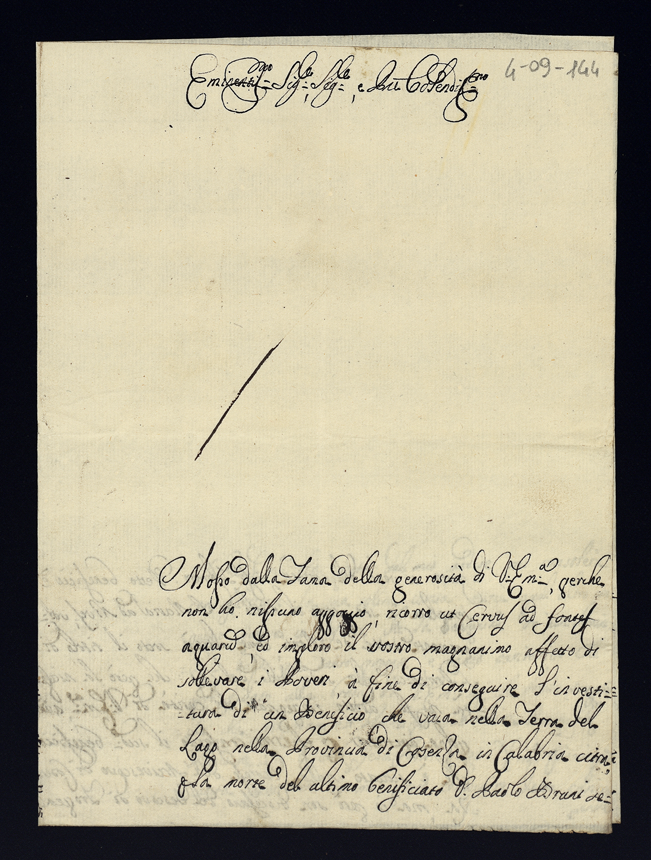 4-09-144
Eminentis.mo Sig.re, Sig.re, e
Mosso dalla Fama della generosità di V. Em.a, perche
non ho nissuno appogio, ricorro ut Cervus ad fontes
aquarū, ed imploro il vostro magnanimo affetto di
sollevare i Poveri, à fine di conseguire l'investi=
=tura di un Benificio che vaca nella Terra del
Lago nella Provincia di Cosenza in Calabria citra
p la morte del ultimo benificiato D. Paolo Bruni se=